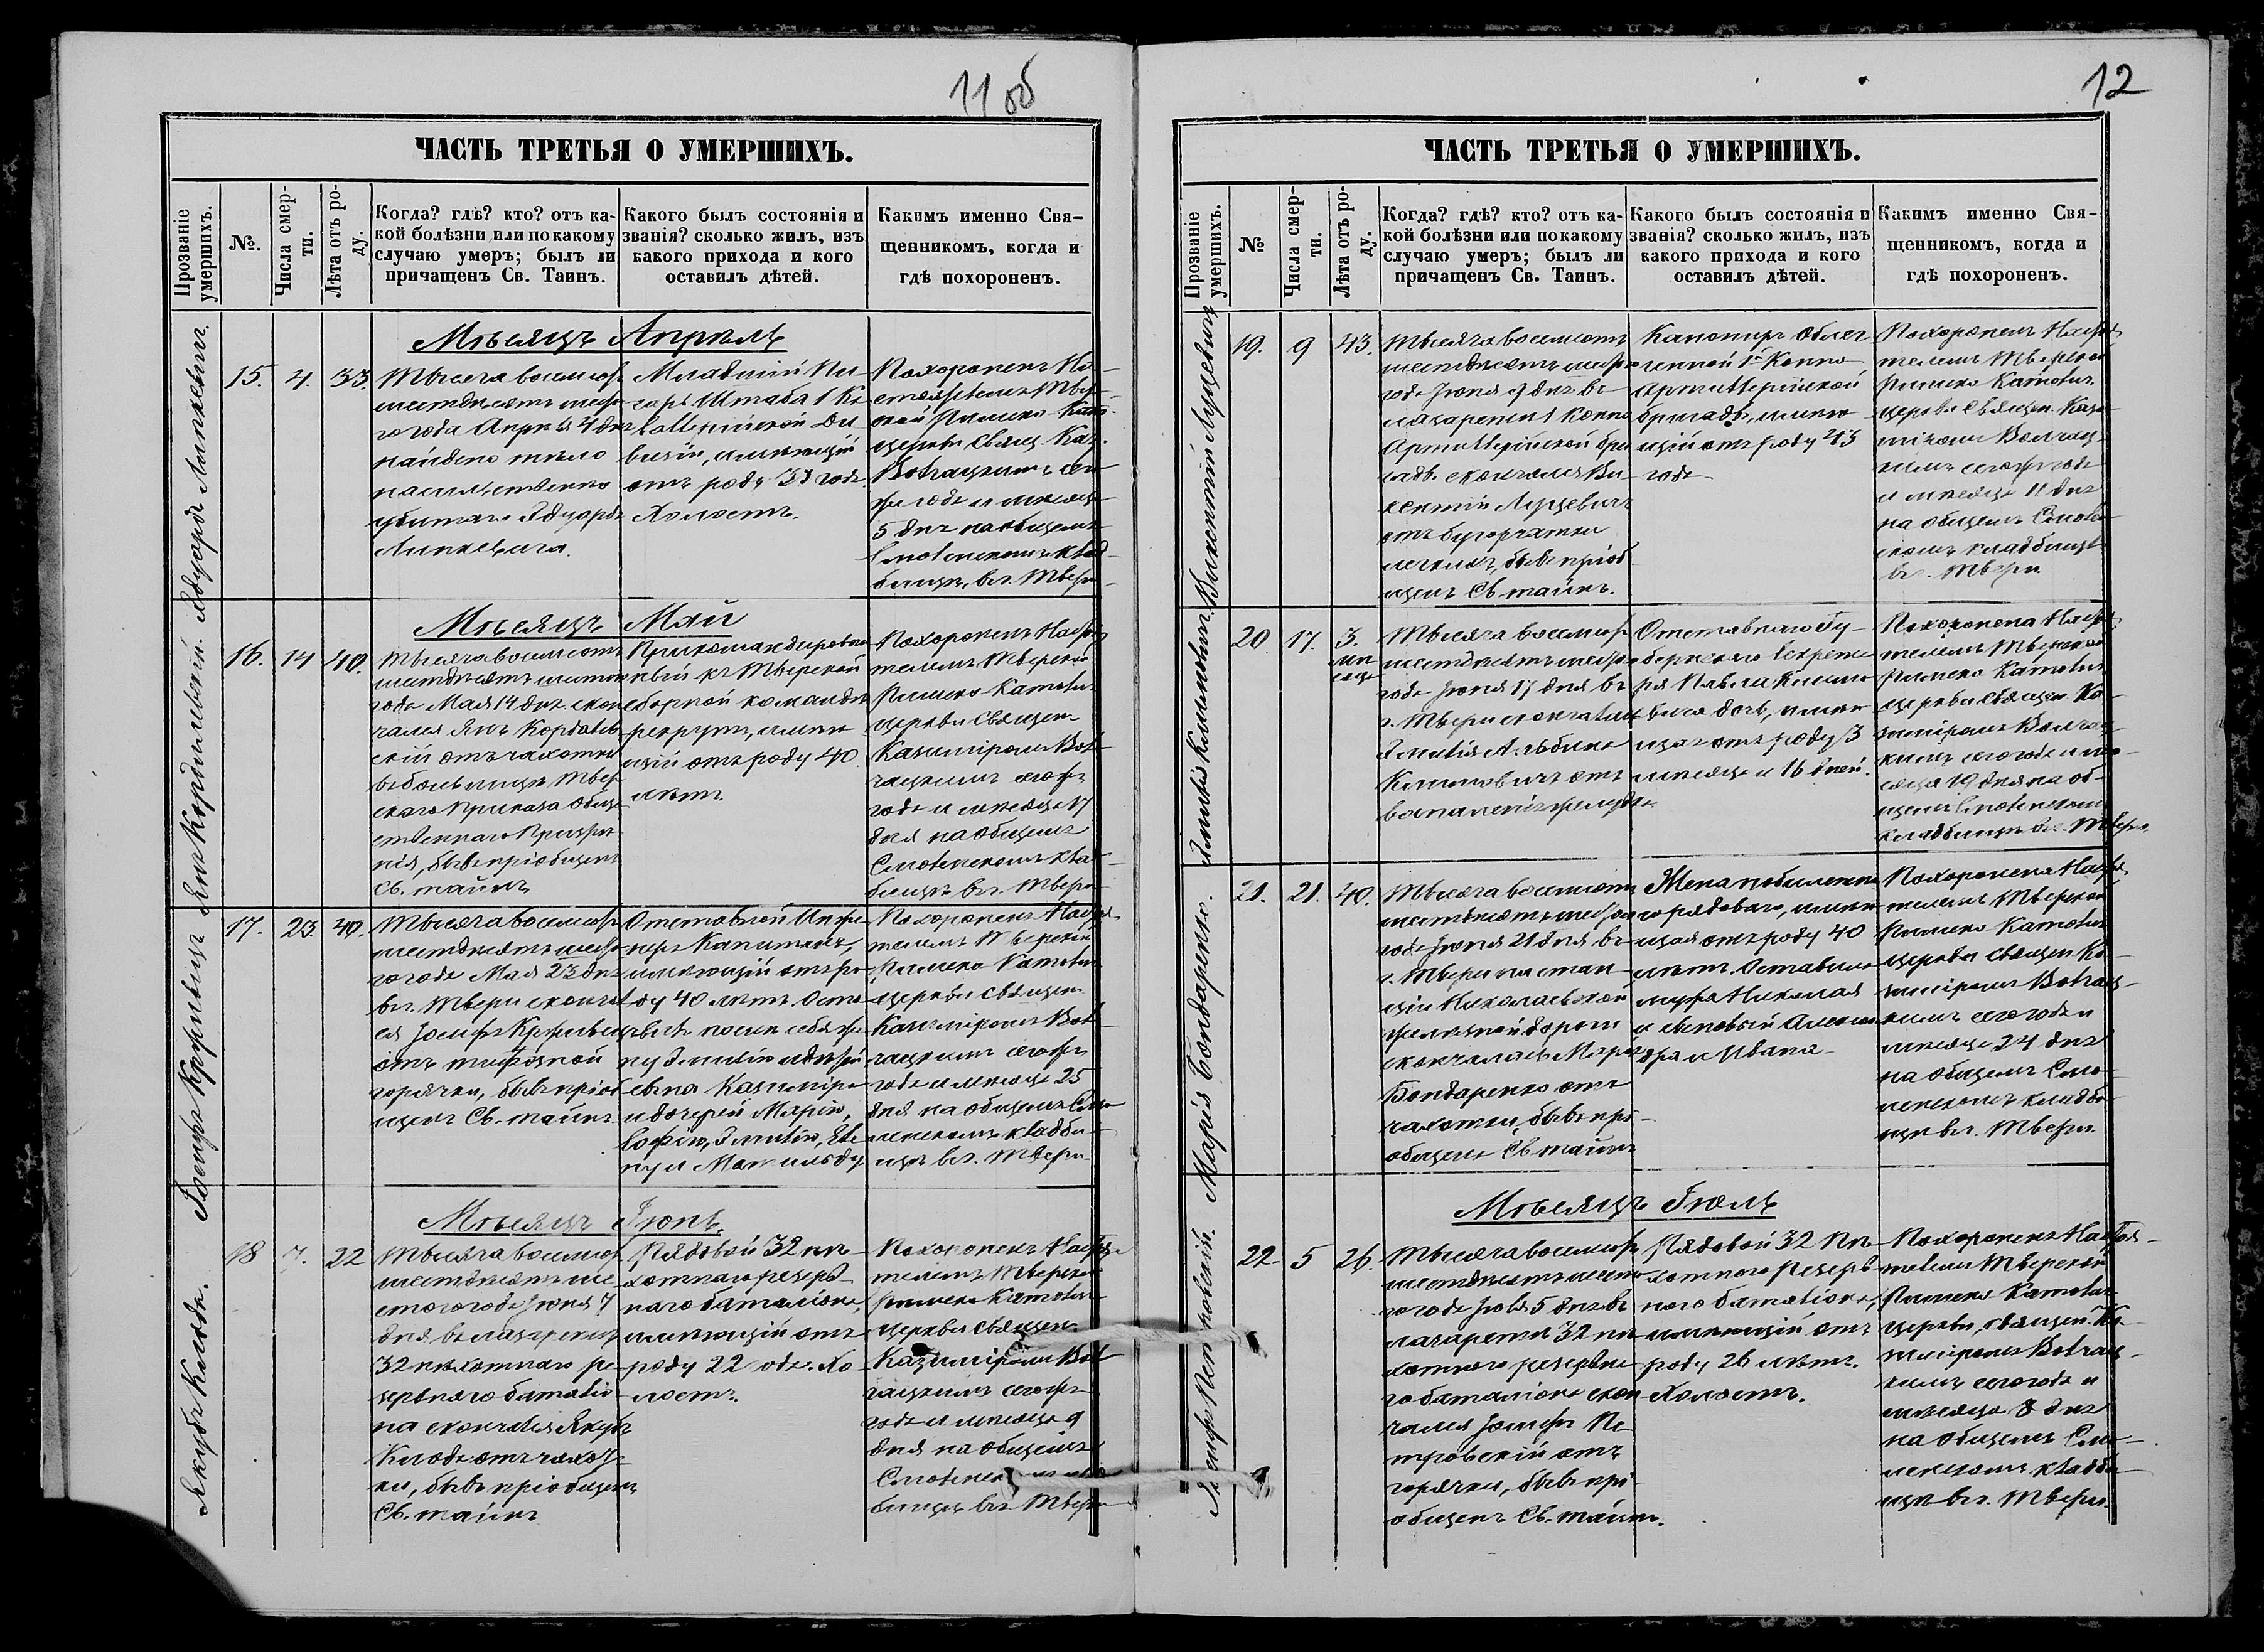 11 об
ЧАСТЬ ТРЕТЬЯ О УМЕРШИХЪ.
Прозваніе умершихъ.
№.
Числа смер-
ти.
Лѣта отъ ро-
ду.
Когда? гдѣ? кто? отъ ка-
кой болѣзни или по какому
случаю умеръ; былъ ли
причащенъ Св. Таинъ.
Какого былъ состоянія и
званія? сколько жилъ, изъ
какого прихода и кого
оставилъ дѣтей.
Какимъ именно Свя-
щенникомъ, когда и
гдѣ похороненъ.
Мѣсяцъ Апрѣль
Эдуардъ
15. 4. 33.
Тысяча восемьсотъ
шестьдесятъ шесто
го года Апрѣля 4 дня
найдено тѣло
насильственно
убитаго Эдуарда
Младшій Пи-
саръ Штаба 1 Ка
валлерійской Ди
визіи, имѣющій
отъ роду 33 года.
Холостъ.
Похороненъ На-
стоятелемъ Твер-
ской Римско-Като.
церкви Свящ. Каз.
сего
же года и мѣсяца
5 дня на общемъ
Смоленскомъ клад-
бищѣ, въ г. Твери
Мѣсяцъ Май
Янъ
16. 14 40.
Тысяча восемьсотъ
шестьдесятъ шестого
года Мая 14 дня скон
чался Янъ
скій отъ чахотки
въ больницѣ Твер
скаго Приказа Обще
ственнаго Призрѣ
нія, бывъ пріобщенъ
Св. тайнъ
Прикомандирован
ный къ Тверской
сборной командѣ
рекрутъ, имѣю
щій отъ роду 40
лѣтъ.
Похороненъ Настоя
телемъ Тверской
Римско Католич
церкви Священ
Казиміромъ Вол
чацкимъ сего же
года и мѣсяца 17
дня на общемъ
Смоленскомъ клад
бищѣ въ г. Твери
Іосифъ
17. 23. 40.
Тысяча восемьсотъ
шестьдесятъ шесто
го года Мая 23 дня
въ г. Твери скончал
ся Іосифъ
отъ тифозной
горячки, бывъ пріоб
щенъ Св. тайнъ
Отставной Инже
неръ Капитанъ,
имѣющій отъ ро
ду 40 лѣтъ. Оста
вилъ послѣ себя же
ну Эмилію
сына Казиміра
и дочерей Марію,
Софію, Эмилію, Еле
ну и Матильду
Похороненъ Настоя
телемъ Тверской
Римско Католич
церкви Священ
Казиміромъ Вол
чацкимъ сего же
года и мѣсяца 25
дня на общемъ Смо
ленскомъ кладби
щѣ въ г. Твери
Мѣсяцъ Іюнь.
Якубъ Клода.
18 7. 22
Тысяча восемьсотъ
шестьдесятъ ше
стого года Іюня 7
дня въ лазаретѣ
32 пѣхотнаго ре
зервнаго баталіо
на скончался Якубъ
Клода отъ чахот
ки, бывъ пріобщенъ
Св. тайнъ
Рядовой 32 пѣ
хотнаго резерв
наго баталіона,
имѣющій отъ
роду 22 года. Хо
лостъ.
Похороненъ Настоя
телемъ Тверской
Римско Католич
церкви Священ
Казиміромъ Вол
чацкимъ сего же
года и мѣсяца 9
дня на общемъ
Смоленскомъ клад
бищѣ въ г. Твери
12
ЧАСТЬ ТРЕТЬЯ О УМЕРШИХЪ.
Прозваніе умершихъ.
№
Числа смер-
ти.
Лѣта отъ ро-
ду.
Когда? гдѣ? кто? отъ ка-
кой болѣзни или по какому
случаю умеръ; былъ ли
причащенъ Св. Таинъ.
Какого былъ состоянія и
званія? сколько жилъ, изъ
какого прихода и кого
оставилъ дѣтей.
Какимъ именно Свя-
щенникомъ, когда и
гдѣ похороненъ.
Викентій Луцевичъ
19. 9 43.
Тысяча восемьсотъ
шестьдесятъ шестого
года Іюня 9 дня въ
лазаретѣ 1 Конно
Артиллерійской бри
гады скончался Ви
кентій Луцевичъ
отъ бугорчатки
легкихъ, бывъ пріоб
щенъ Св. тайнъ.
Канониръ Облег
ченной 1й Конно
Артиллерійской
бригады, имѣю
щій отъ роду 43
года
Похороненъ Настоя
телемъ Тверской
Римско Католич
церкви Священ. Кази
міромъ Волчац-
кимъ сего же года
и мѣсяца 11 дня
на общемъ Смолен
скомъ кладбищѣ
въ г. Твери
Эмилія Климовичъ.
20. 17. 3.
мѣ
сяца
Тысяча восемьсотъ
шестьдесятъ шестого
года Іюня 17 дня въ
г. Твери скончалась
Эмилія Альбина
Климовичъ отъ
воспаленія желудка
Отставнаго Гу
бернскаго Секрета
ря Павла Климо
вича дочь, имѣю
щая отъ роду 3
мѣсяца и 16 дней.
Похоронена Настоя
телемъ Тверской
Римско Католич
церкви Священ Ка
зиміромъ Волчац
кимъ сего года и мѣ
сяца 19 дня на об
щемъ Смоленскомъ
кладбищѣ въ г. Твери
Марія Бондаренко.
21. 21. 40.
Тысяча восемьсотъ
шестьдесятъ шестого
года Іюня 21 дня въ
г. Твери на стан
ціи Николаевской
желѣзной дороги
скончалась Марія
Бондаренко отъ
чахотки, бывъ прі-
общена Св. тайнъ
Жена
рядоваго, имѣю
щая отъ роду 40
лѣтъ. Оставила
мужа Николая
и сыновей Алексан
дра и Ивана
Похоронена Настоя
телемъ Тверской
Римско Католич
церкви Священ Ка
зиміромъ Волчац
кимъ сего года и
мѣсяца 24 дня
на общемъ Смо
ленскомъ кладби
щѣ въ г. Твери.
Мѣсяцъ Іюль
Іосифъ Петровскій.
22. 5 26.
Тысяча восемьсотъ
шестьдесятъ шесто
го года Іюля 5 дня въ
лазаретѣ 32 пѣ
хотнаго резервна
го баталіона скон
чался Іосифъ Пе
тровскій отъ
горячки, бывъ прі
общенъ Св. тайнъ.
Рядовой 32 Пѣ
хотнаго Резерв
наго баталіона,
имѣющій отъ
роду 26 лѣтъ.
Холостъ.
Похороненъ Настоя
телемъ Тверской
Римско Католич
церкви, Священ. Ка
зиміромъ Волчац
кимъ сего года и
мѣсяца 8 дня
на общемъ Смо
ленскомъ кладби
щѣ въ г. Твери.